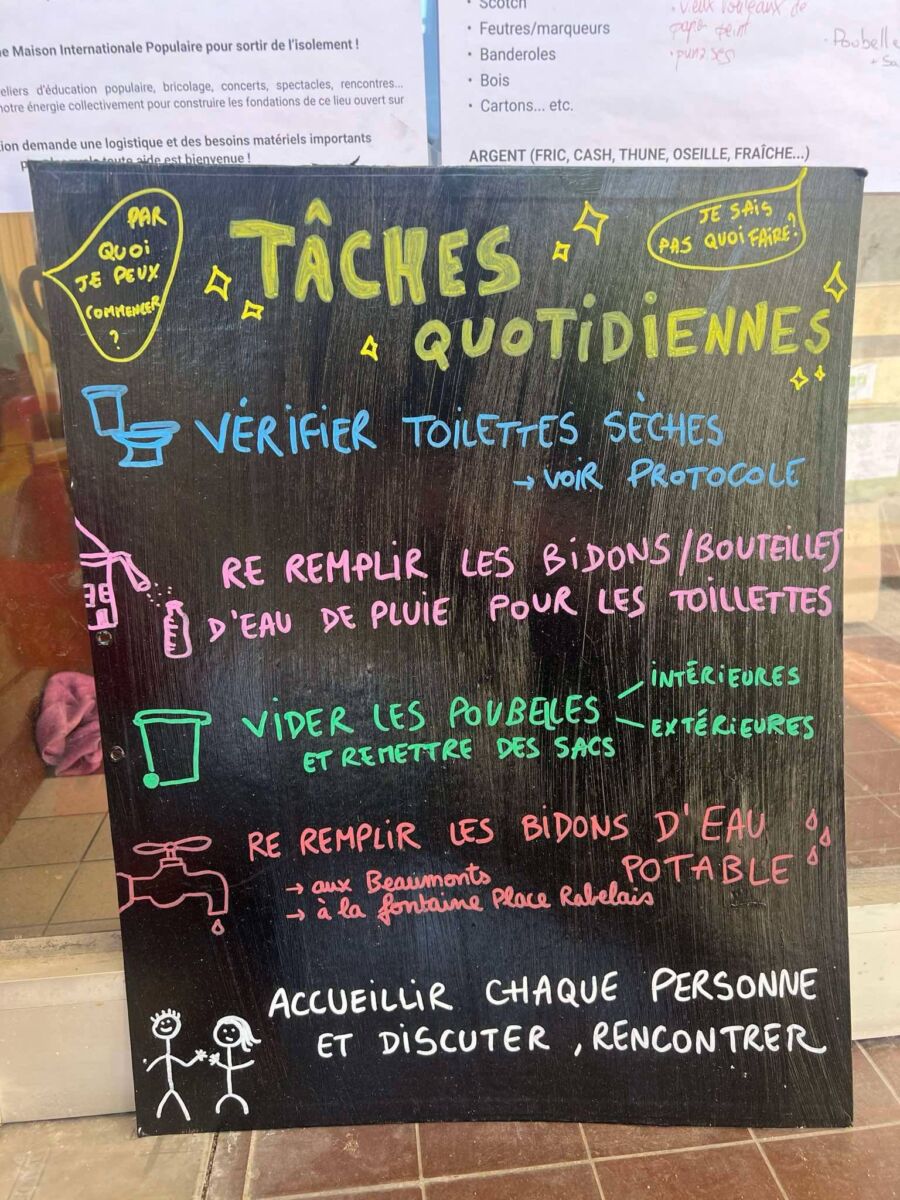 ne Maison Internationale Populaire pour sortir de l'isolement !
eliers d'éducation populaire, bricolage, concerts, spectacles, rencontres...
notre énergie collectivement pour construire les fondations de ce lieu ouvert sur
tion demande une logistique et des besoins matériels importants
toute aide est bienvenue !
• Scotch
• Feutres/marqueurs
• Banderoles
• Bois
• Cartons... etc.
• vieux rouleaux de
papier peint
• punaises
• Poubelle
+ sa
ARGENT (FRIC, CASH, THUNE, OSEILLE, FRAÎCHE...)
PAR
QUOI
JE PEUX
COMMENCER
?
JE SAIS
PAS QUOI FAIRE ?
TÂCHES
QUOTIDIENNES
VÉRIFIER TOILETTES SÈCHES
→ VOIR PROTOCOLE
RE REMPLIR LES BIDONS/BOUTEILLES
D'EAU DE PLUIE POUR LES TOILLETTES
VIDER LES POUBELLES
ET REMETTRE DES SACS
INTÉRIEURES
EXTÉRIEURES
RE REMPLIR LES BIDONS D'EAU
POTABLE
→ aux Beaumonts
→ à la fontaine Place Rabelais
ACCUEILLIR CHAQUE PERSONNE
ET DISCUTER , RENCONTRER